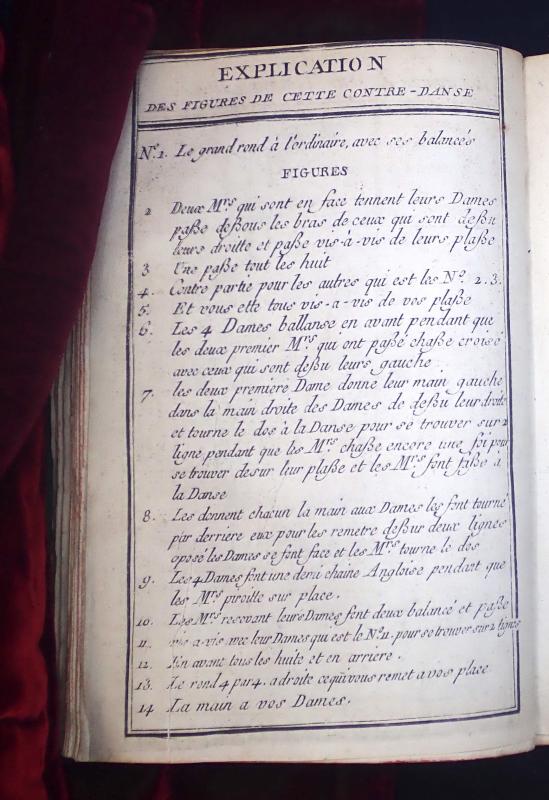 EXPLICATION
DES FIGURES DE CETTE CONTRE-DANSE
N.º 1. Le grand rond à l'ordinaire, avec ses balancés
FIGURES
2 Deux M.rs qui sont en face tennent leurs Dames
paße deßous les bras de ceux qui sont deßu
leurs droitte et paße vis-a-vis de leurs plaße
3 Une paße tout les huit
4. Contre partie pour les autres qui est les N.º 2.3.
5. Et vous ette tous vis-a-vis de vos plaße
6. Les 4 Dames ballanse en avant pendant que
les deux premier M.rs qui ont paßé chaße croisé
avec ceux qui sont deßu leurs gauche
7. les deux premiere Dame donne leur main gauche
dans la main droite des Dames de deßu leur droite
et tourne le dos à la Danse pour se trouver sur 2
ligne pendant que les M.rs chaße encore une foi pour
se trouver desur leur plaße et les M.rs font faße a
la Danse
8. Les donnent chacun la main aux Dames les font tourné
par derriere eux pour les remetre deßur deux lignes
oposé les Dames se font face et les M.rs tourne le dos
9. Les 4 Dames font une demi chaine Angloise pendant que
les M.rs piroitte sur place.
10. Les M.rs recovant leurs Dames font deux balancé et paße
11. vis-a-vis avec leur Dames qui est le N.º 11. pour se trouver sur 2 lignes
12. En avant tous les huite et en arriere.
13. Le rond 4 par 4. a droite ce qui vous remet a vos place
14 La main a vos Dames.